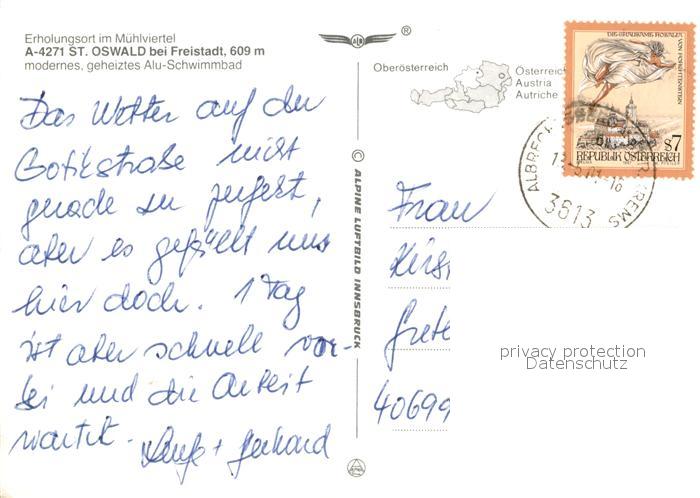 Erholungsort im Mühlviertel
A-4271 ST. OSWALD bei Freistadt, 609 m
modernes, geheiztes Alu-Schwimmbad
Das Wetter auf der
Gotikstraße nicht
gerade zu perfekt,
aber es gefällt uns
hier doch. 1 Tag
ist aber schnell vor-
bei und die Arbeit
wartet.
+ Gerhard
© ALPINE LUFTBILD INNSBRUCK
®
Oberösterreich
Österreich
Austria
Autriche
VON FORCHTENSTEIN
S7
REPUBLIK ÖSTERREICH
ALBRECH
KREMS
3613
Frau
Kirs
Grete
40699
privacy protection
Datenschutz